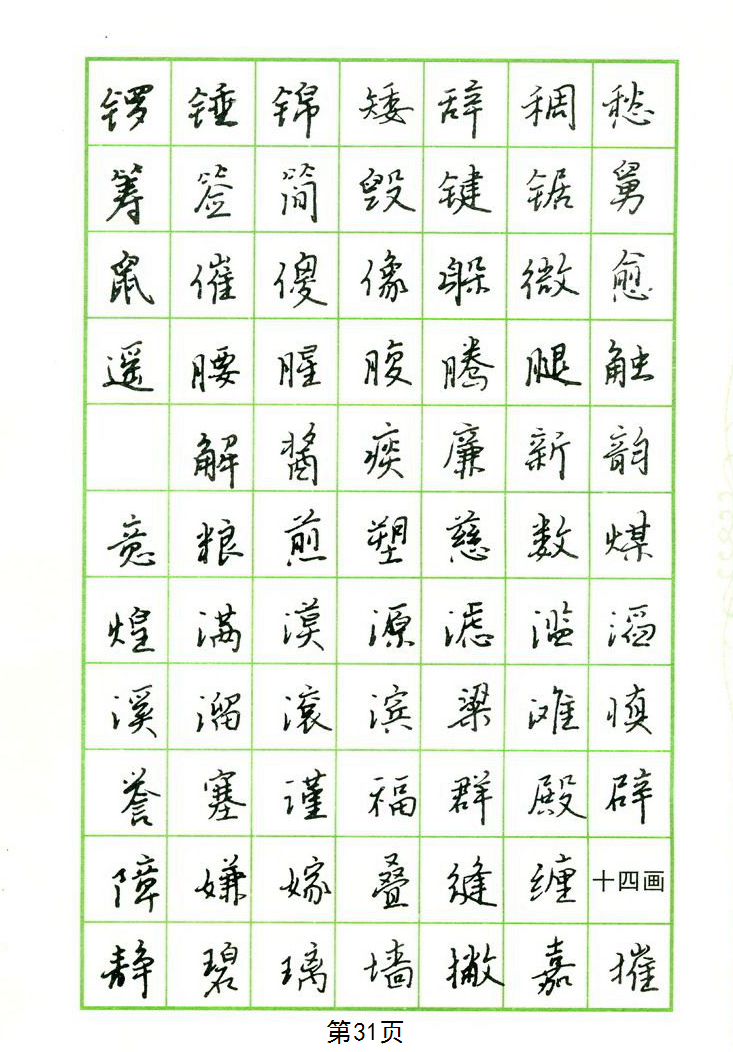 锣 锤 锦 矮 辞 稠 愁
筹 签 简 毁 键 锯 舅
鼠 催 傻 像 躲 微 愈
遥 腰 腥 腹 腾 腿 触
解 酱 痰 廉 新 韵
意 粮 煎 塑 慈 数 煤
煌 满 漠 源 滤 滥 滔
溪 溜 滚 滨 粱 滩 慎
誉 塞 谨 福 群 殿 辟
障 嫌 嫁 叠 缝 缠 十四画
静 碧 璃 墙 撇 嘉 摧
第31页